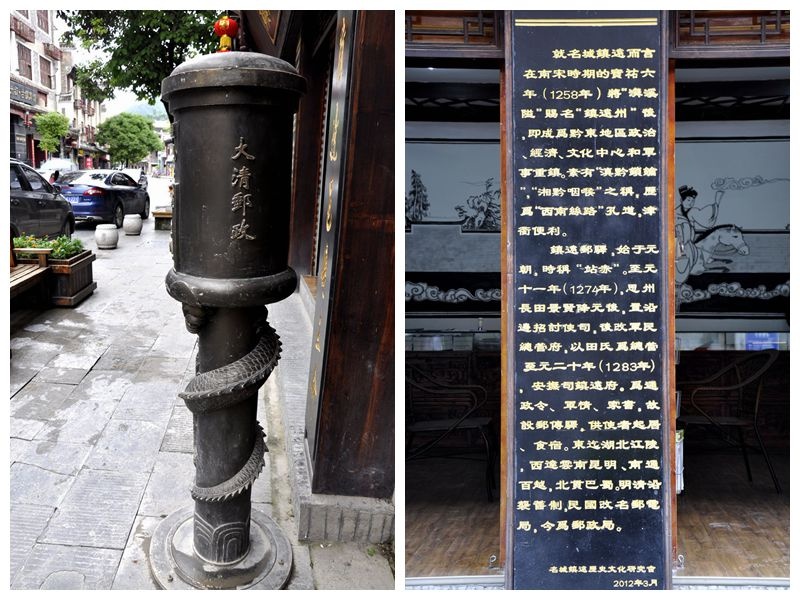 大清郵政
就名城鎮遠而言
在南宋時期的寶祐六
年（1258年）將“㵲溪
隘”賜名“鎮遠州”後
，即成爲黔東地區政治
、經濟、文化中心和軍
事重鎮。素有“滇黔鎖鑰
”，“湘黔咽喉”之稱，歷
爲“西南絲路”孔道，津
衢便利。
鎮遠郵驛，始于元
朝，時稱“站赤”。至元
十一年（1274年），思州
長田景賢降元後，置沿
邊招討使司，後改軍民
總管府，以田氏爲總管
至元二十年（1283年）
，安撫司鎮遠府。爲通
政令、軍情、家書，故
設郵傳驛，供使者起居
、食宿。東迄湖北江陵
，西達雲南昆明、南通
百越，北貫巴蜀。明清沿
襲舊制，民國改名郵電
局，今爲郵政局。
名城鎮遠歷史文化研究會
2012年3月